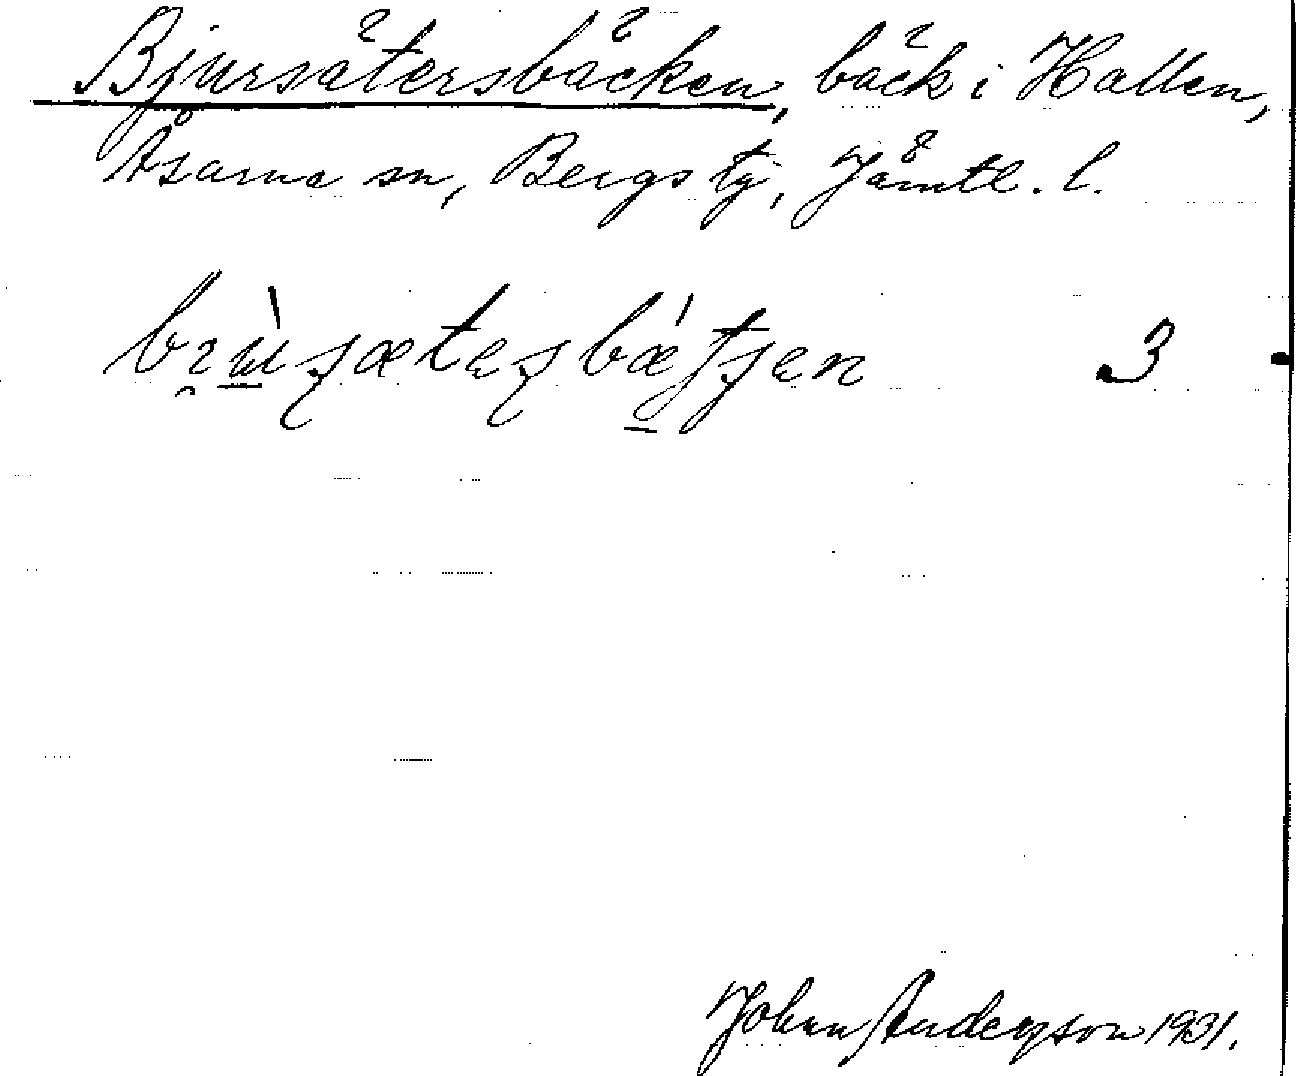 Bjursätersbäcken, bäck i Hallen,
Åsarna sn, Bergs tg, Jämtl. l.
3
Johan Anderson 1931.